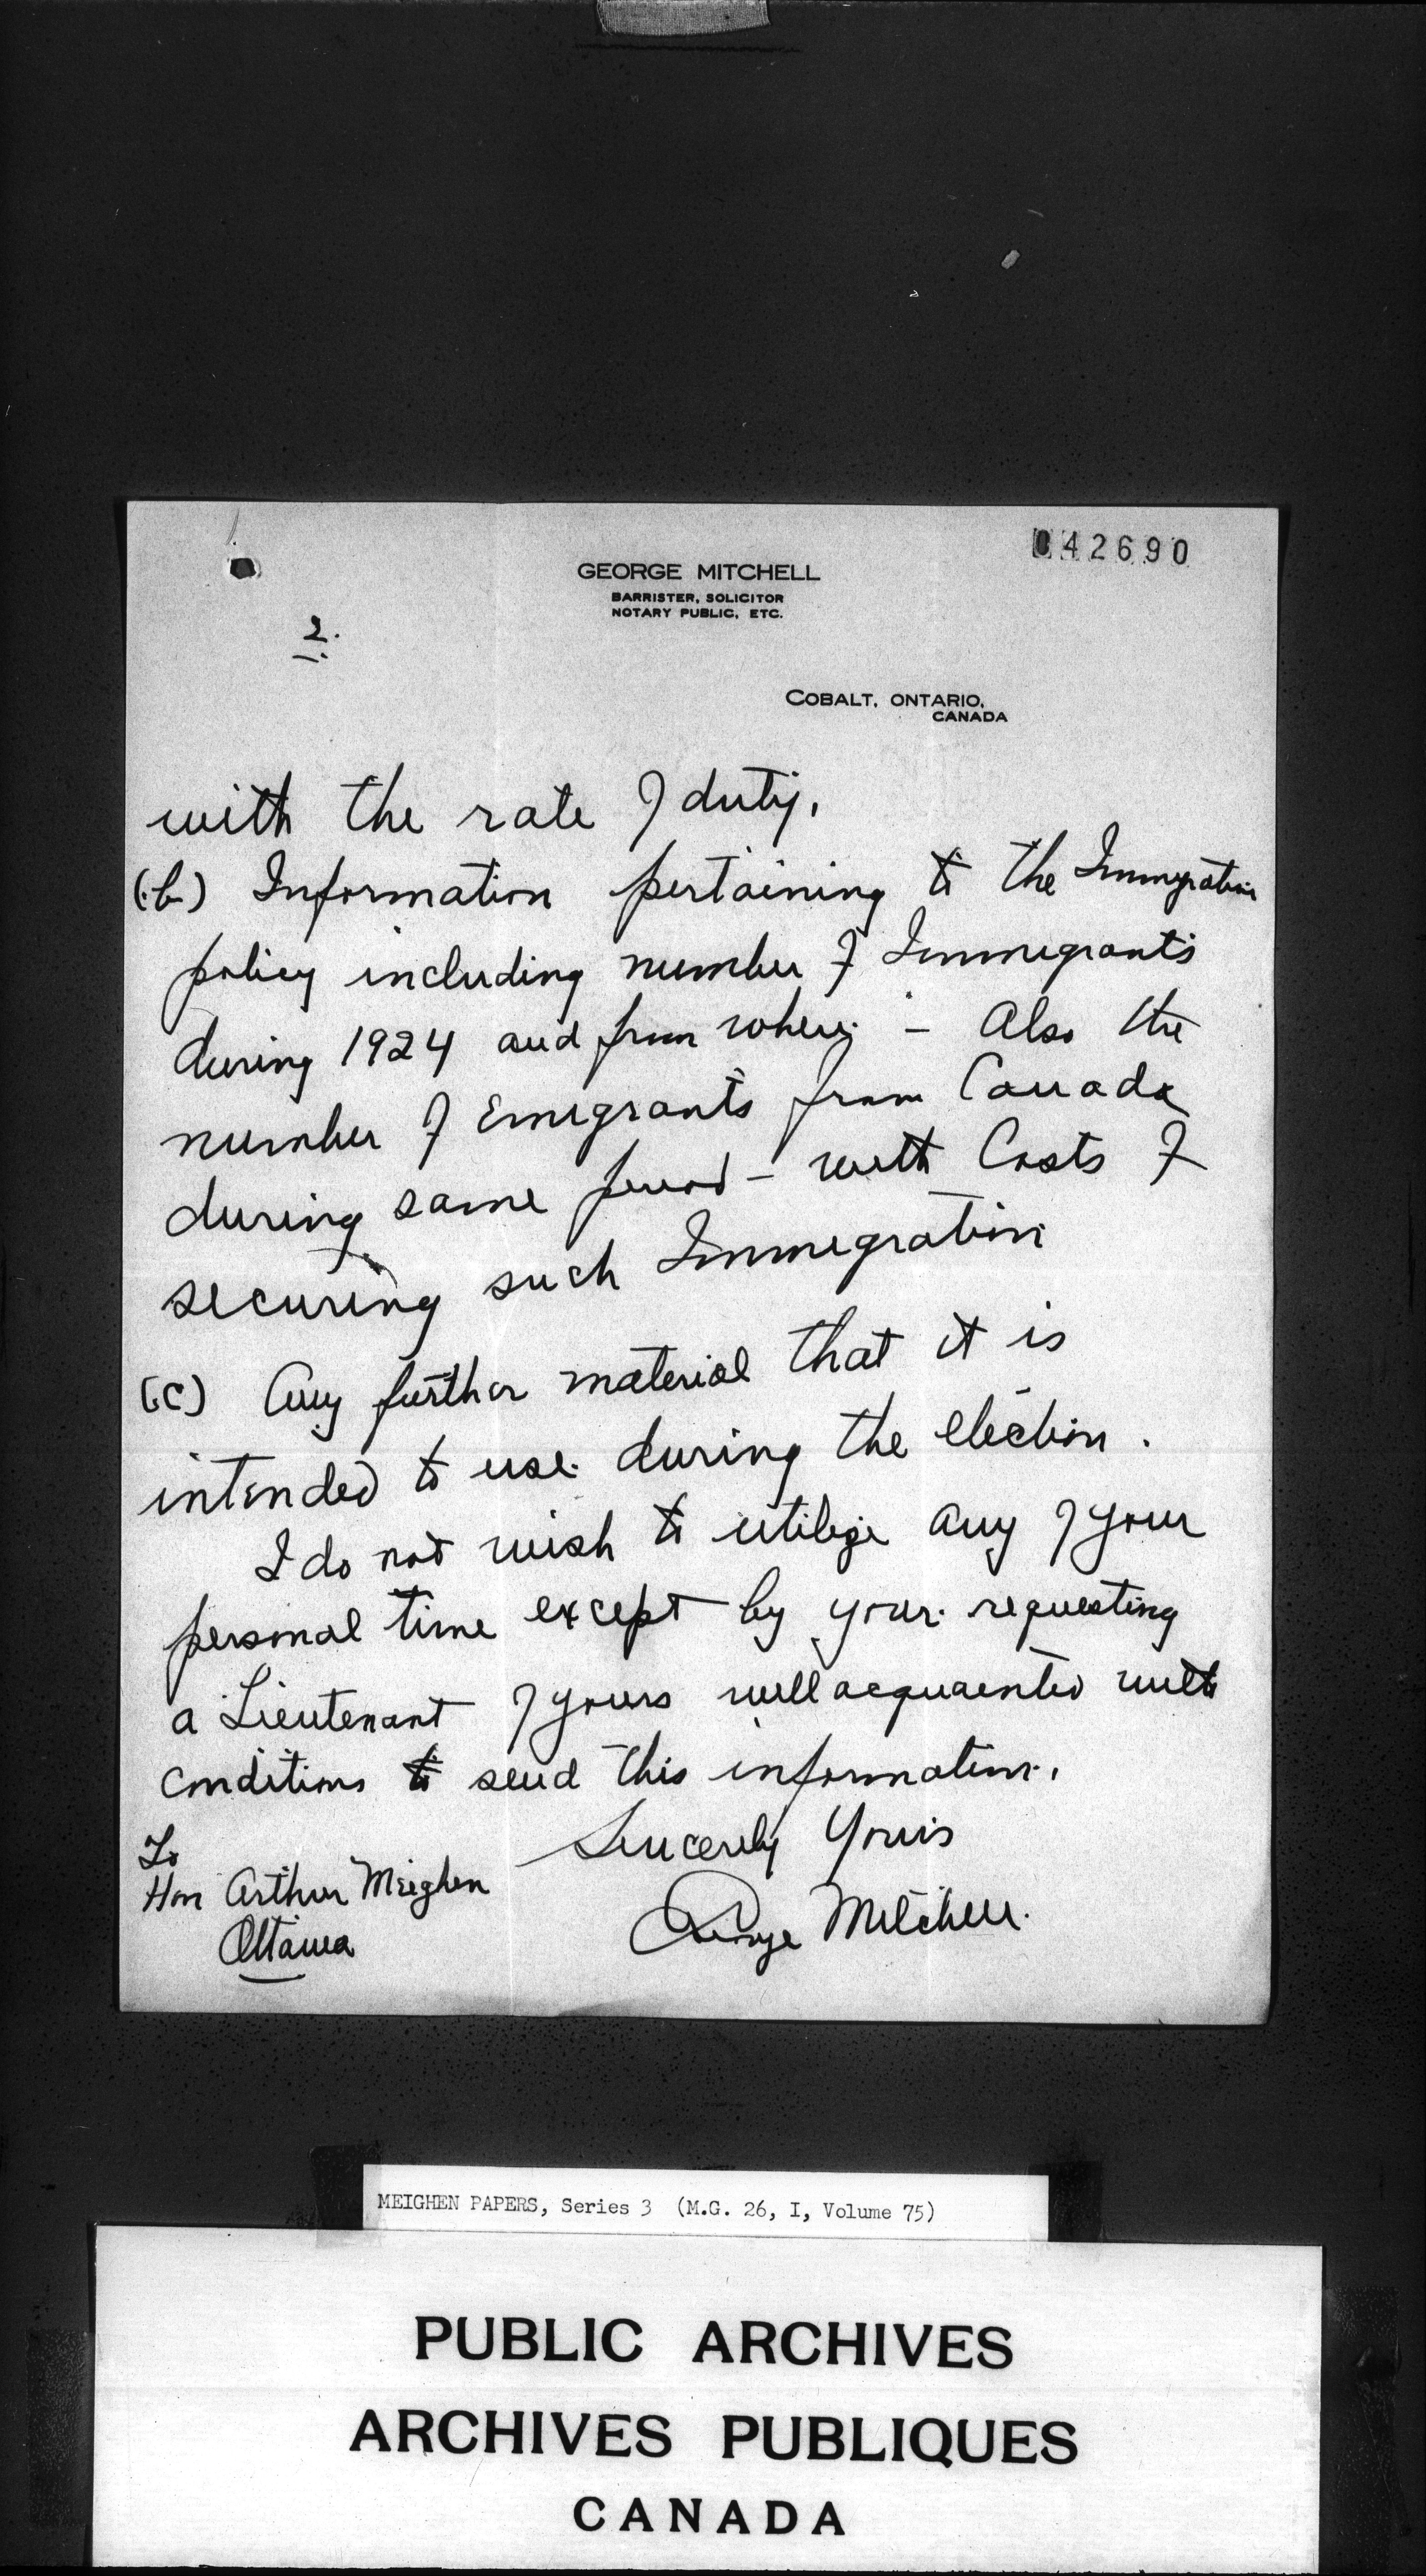 042690
GEORGE MITCHELL
BARRISTER, SOLICITOR
NOTARY PUBLIC, ETC.
2.
COBALT, ONTARIO,
CANADA
with the rate of duty.
(b) Information pertaining to the Immigration
policy including number of Immigrants
during 1924 and from where - Also the
number of Emigrants from Canada
during same period - with Costs of
securing such Immigration
(c) Any further material that it is
intended to use during the election.
I do not wish to utilize any of your
personal time except by your requesting
a Lieutenant of yours well acquainted with
conditions to send this information.
Sincerely Yours
George Mitchell.
To
Hon Arthur Meighen
Ottawa
MEIGHEN PAPERS, Series 3 (M.G. 26, I, Volume 75)
PUBLIC ARCHIVES
ARCHIVES PUBLIQUES
CANADA